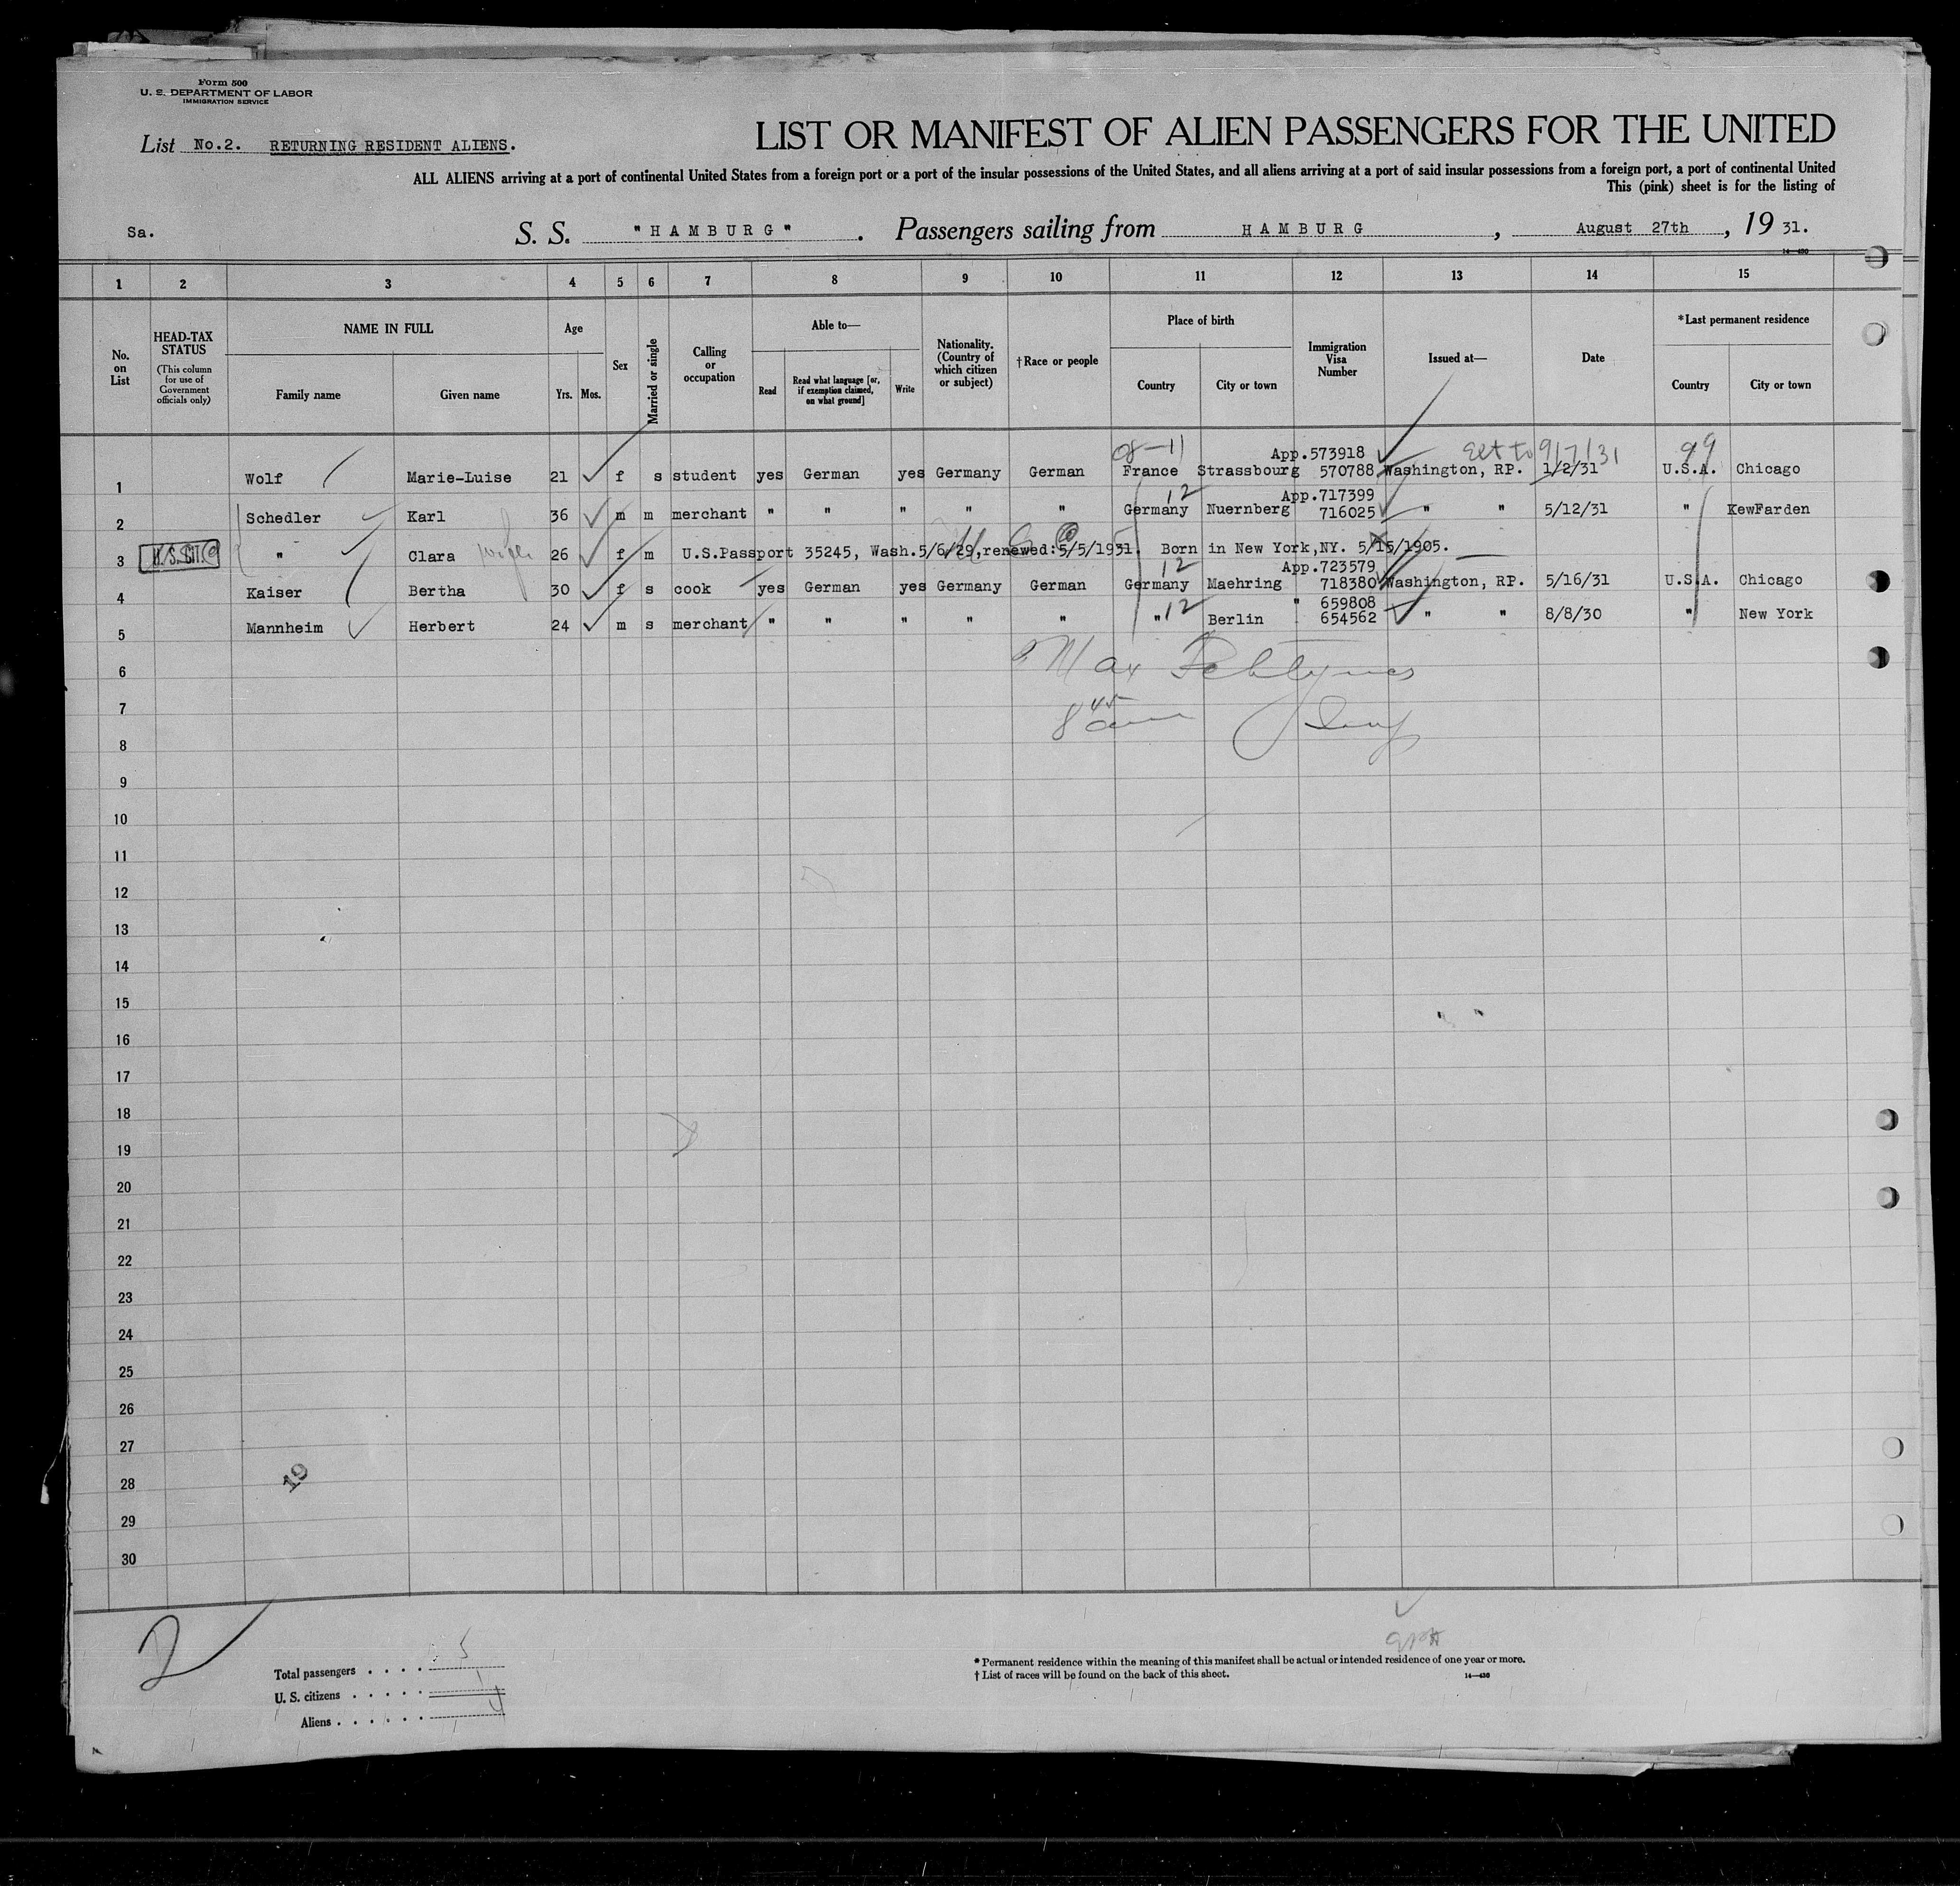 Form 500
U. S. DEPARTMENT OF LABOR
IMMIGRATION SERVICE
List No.2. RETURNING RESIDENT ALIENS.
LIST OR MANIFEST OF ALIEN PASSENGERS FOR THE UNITED
ALL ALIENS arriving at a port of continental United States from a foreign port or a port of the insular possessions of the United States, and all aliens arriving at a port of said insular possessions from a foreign port, a port of continental United
This (pink) sheet is for the listing of
Sa. S. S. "HAMBURG". Passengers sailing from HAMBURG, August 27th, 19 31.
14—430
1 2 3 4 5 6 7 8 9 10 11 12 13 14 15
No. on List
HEAD-TAX STATUS (This column for use of Government officials only)
NAME IN FULL
Family name Given name
Age
Yrs. Mos.
Sex
Married or single
Calling or occupation
Able to—
Read Read what language [or, if exemption claimed, on what ground] Write
Nationality. (Country of which citizen or subject)
†Race or people
Place of birth
Country City or town
Immigration Visa Number
Issued at—
Date
*Last permanent residence
Country City or town
App.573918 ext to 9/7/31 99
1 Wolf Marie-Luise 21 f s student yes German yes Germany German France Strassbourg 570788 Washington, RP. 1/2/31 U.S.A. Chicago
12 App.717399
2 Schedler Karl 36 m m merchant " " " " " Germany Nuernberg 716025 " " 5/12/31 " KewFarden
3 " Clara wife 26 f m U.S.Passport 35245, Wash.5/6/29,renewed:5/5/1931. Born in New York,NY. 5/15/1905.
12 App.723579
4 Kaiser Bertha 30 f s cook yes German yes Germany German Germany Maehring 718380 Washington, RP. 5/16/31 U.S.A. Chicago
" 659808
5 Mannheim Herbert 24 m s merchant " " " " " " 12 Berlin 654562 " " 8/8/30 " New York
6 Max
7 8 45 am
8
9
10
11
12
13
14
15
16
17
18
19
20
21
22
23
24
25
26
27
28
29
30
19
2
Total passengers . . . . 5
U. S. citizens . . . . . 1
Aliens . . . . . . 4
*Permanent residence within the meaning of this manifest shall be actual or intended residence of one year or more.
†List of races will be found on the back of this sheet.
14—430